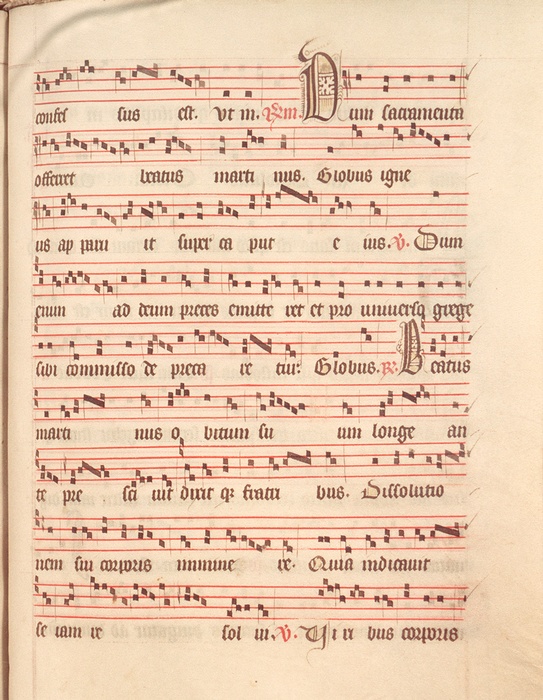 confes sus est. Vt in. Rm. Dum sacramenta
offerret beatus marti nus. Globus igne
us ap paru it supr ca put e ius. V. Dum
enim ad deum preces emitte ret et pro universo grege
sibi commisso de preca re tur. Globus. R. Beatus
marti nus o bitum su um longe an
te pre sci uit dixit qz fratri bus. Dissolutio
nem sui corporis inmine re. Quia indicauit
se iam re sol ui. V. Vi ri bus corporis